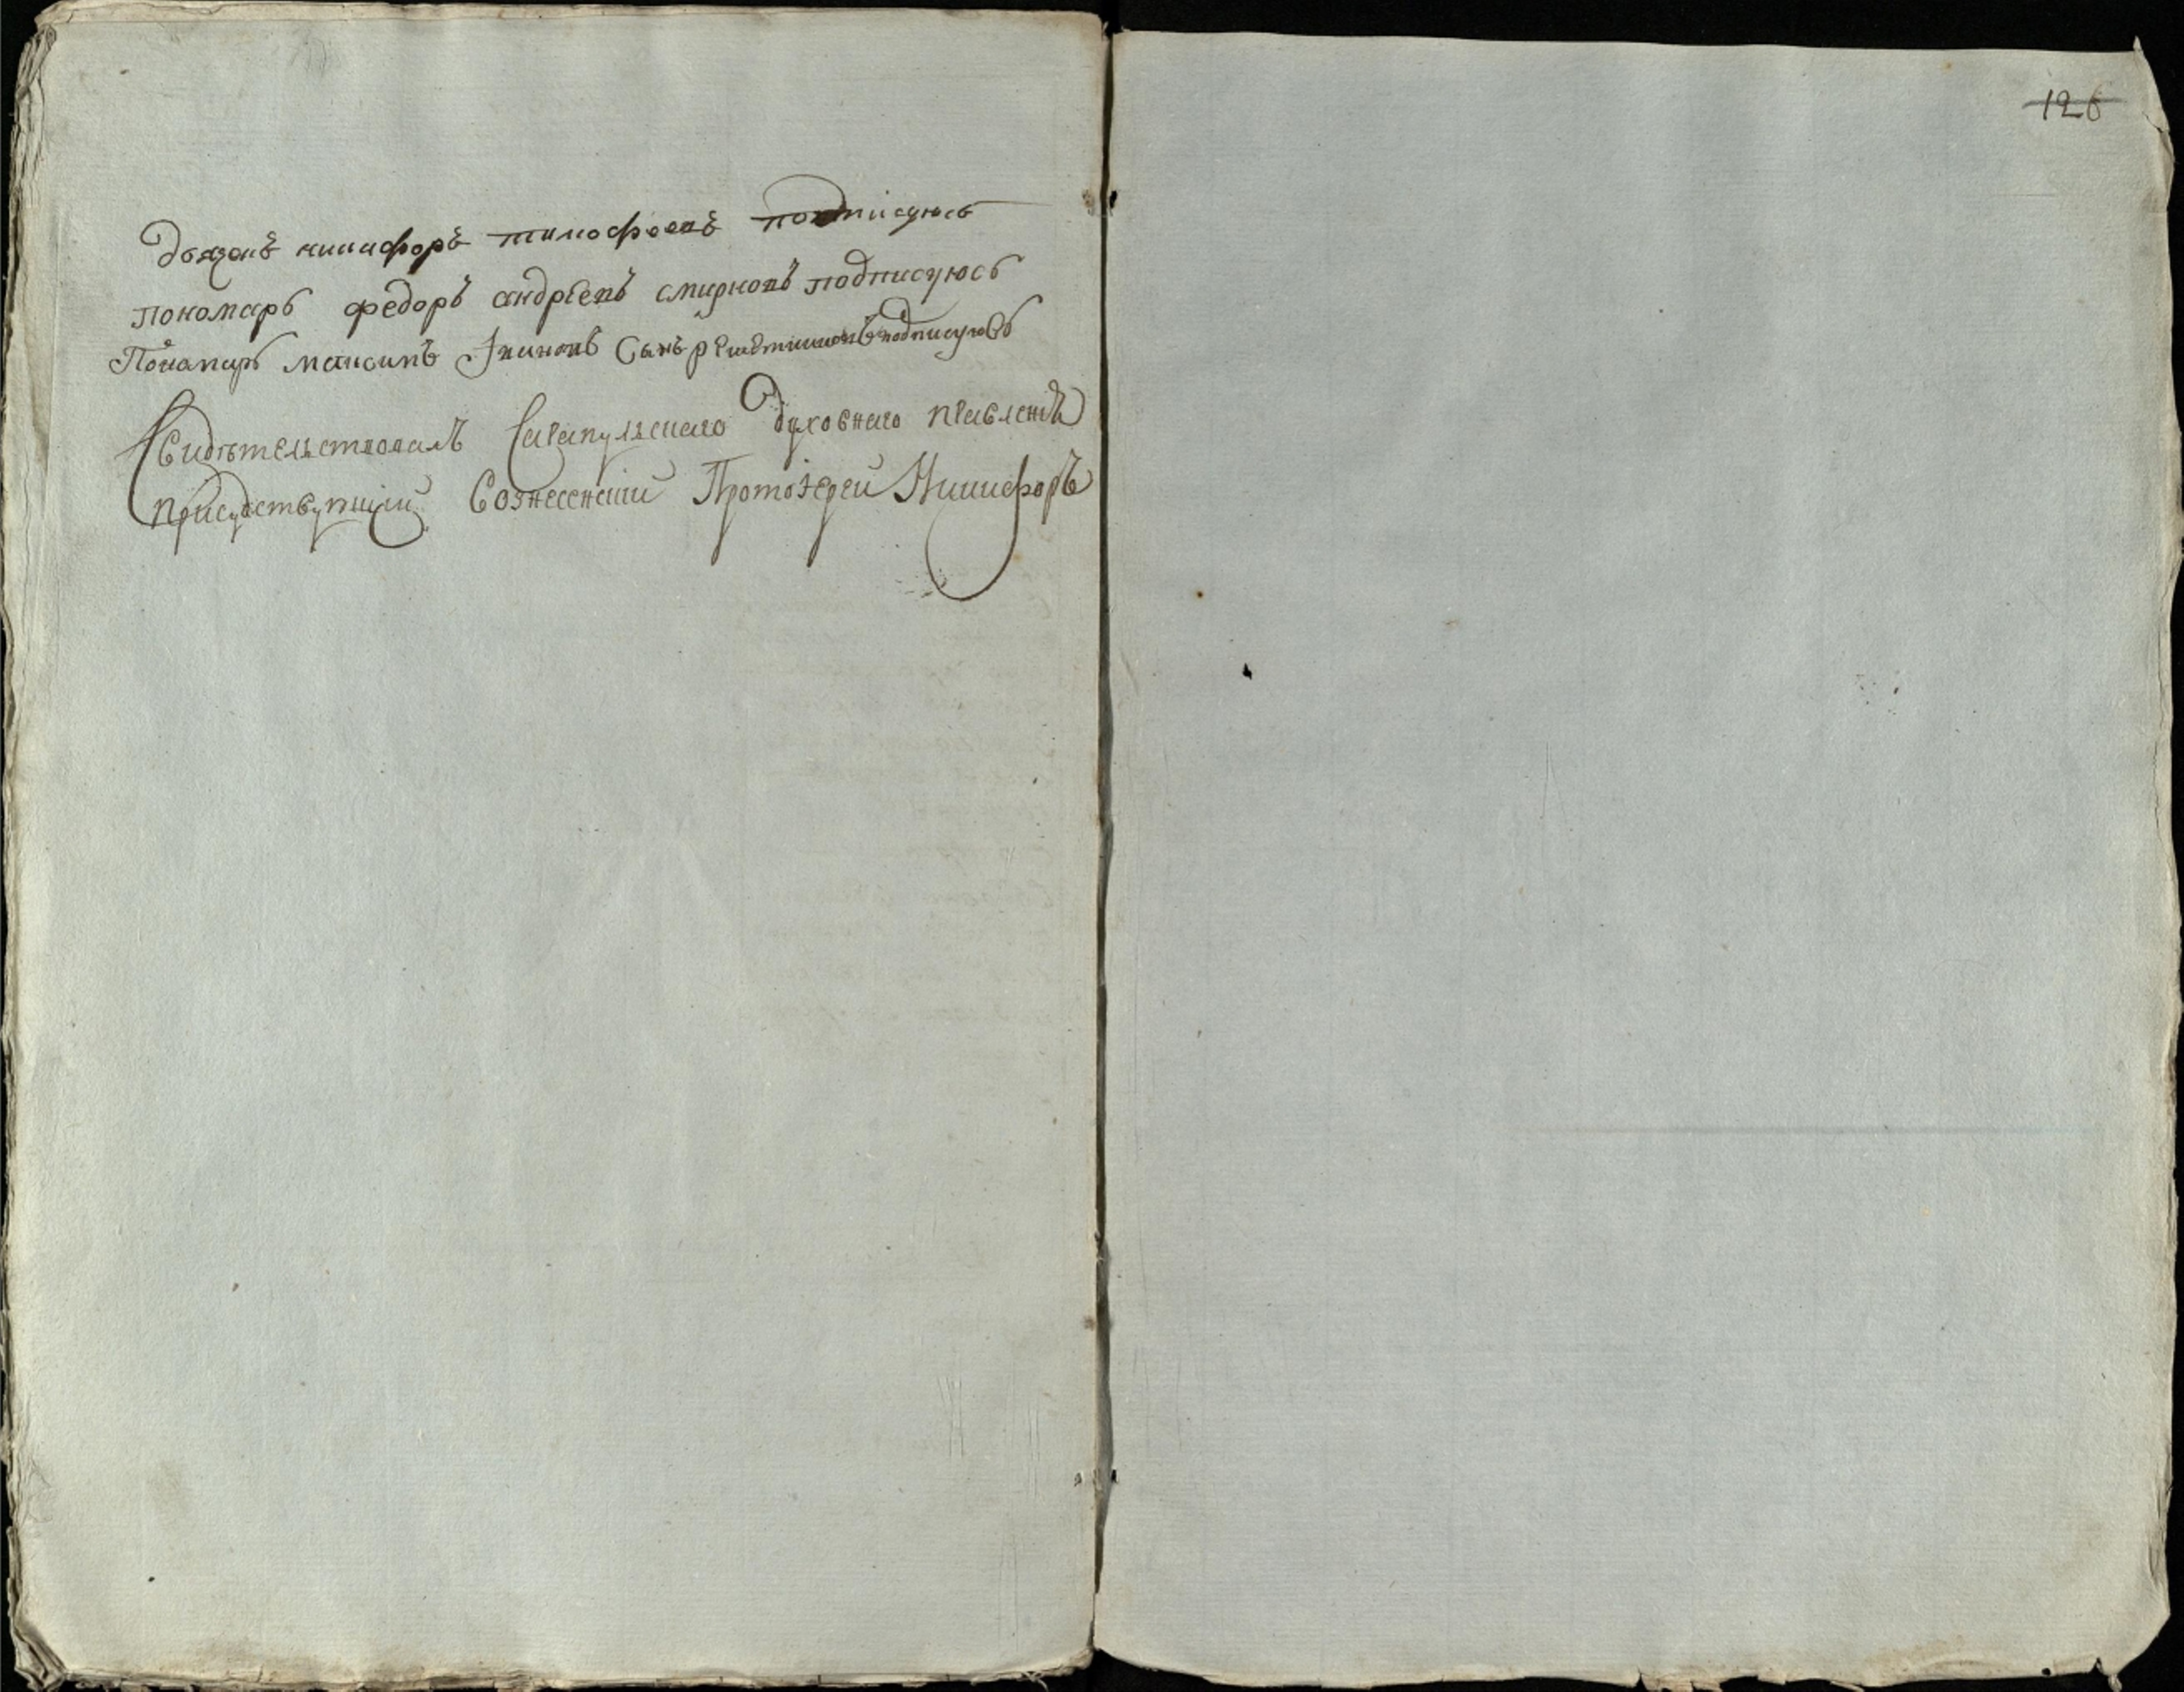 дьяконъ никифоръ тимофеевъ подписуюсь
пономарь федоръ андреевъ смирновъ подписуюсь
Пономарь максимъ Ивановъ Сынъ подписуюсь
Свидѣтельствовалъ Сарапульскаго духовнаго правленiя
присудствующiй Вознесенскiй Протоiерей Никифоръ
126